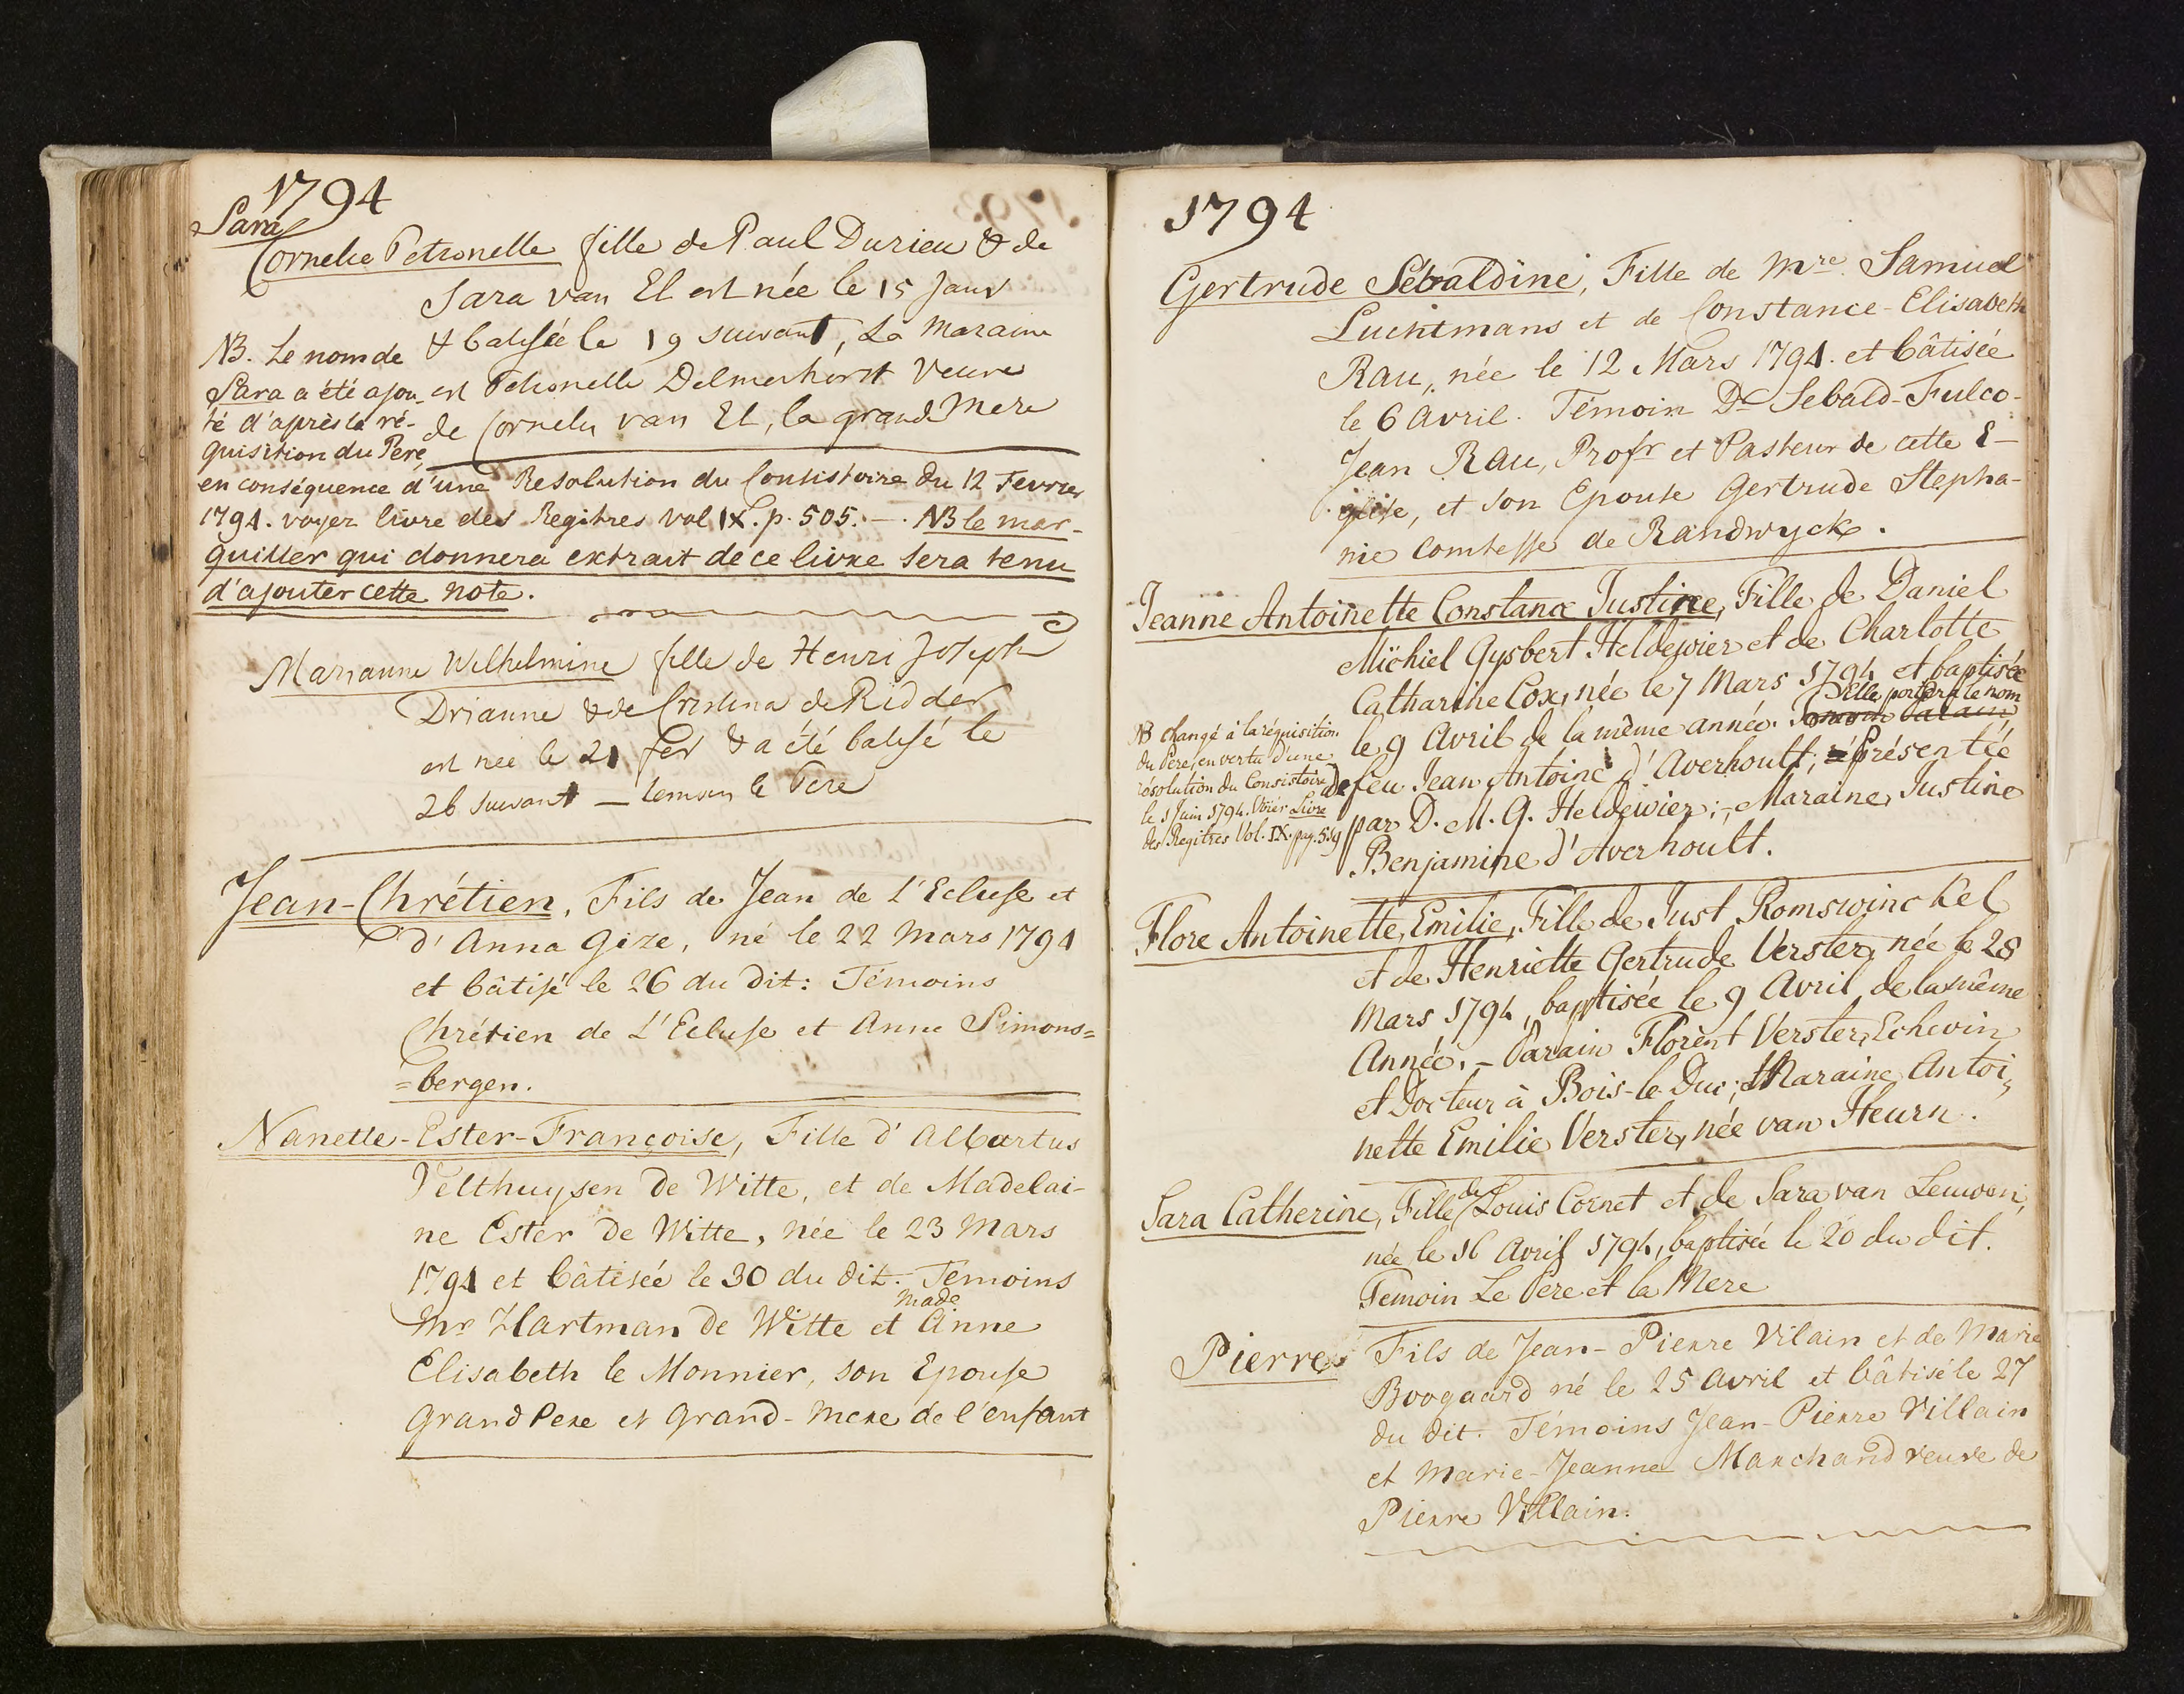 1794
Sara
Cornelie Petronelle fille de Paul Durieu & de
Sara van El est née le 15 Janv
& batisée le 19 suivant, La Maraine
est Petronelle Delmerhorst Veuve
de Cornelis van El, la grand Mere
NB. Le nom de
Sara a été ajou-
té d'après la ré-
quisition du Père,
en conséquence d'une Resolution du Consistoire du 12 Fevrier
1794. voyez livre des Regitres Vol IX. p. 505. — . NB le mar-
guiller qui donnera extrait de ce livre sera tenu
d'ajouter cette note.
Marianne Wilhelmine fille de Henri Joseph
Drianne & de Cristina de Ridder
est née le 21 fev & a été batisé le
26 suivant — temoin le Pere
Jean-Chrétien, Fils de Jean de L'Ecluse et
d'Anna Gize, né le 22 Mars 1794
et bâtisé le 26 du dit: Témoins
Chrétien de L'Ecluse et Anne Simons=
=bergen.
Nanette-Ester-Françoise, Fille d'Albartus
Velthuysen de Witte, et de Madelai-
ne Ester de Witte, née le 23 Mars
1794 et bâtisée le 30 du dit. Temoins
Mr Hartman de Witte et Made Anne
Elisabeth le Monnier, son Epouse
Grand Pere et Grand-Mere de l'enfant
1794
Gertrude Sébaldine, Fille de Mre. Samuel
Luchtmans et de Constance-Elisabeth
Rau, née le 12 Mars 1794. et bâtisée
le 6 Avril. Témoin Dr Sebald-Fulco-
Jean Rau, Profr et Pasteur de cette E-
glise, et son Epouse Gertrude Stepha-
nie Comtesse de Randwyck.
Jeanne Antoinette Constance Justine, Fille de Daniel
Michiel Gysbert Heldewier et de Charlotte
Catharine Cox, née le 7 Mars 1794 et baptisée
le 9 Avril de la même année. Elle portera le nom
de feu Jean Antoine d'Averhoult; présentée
par D. M. G. Heldewier; - Maraine, Justine
Benjamine d'Averhoult.
NB changé à la réquisition
du Pere, en vertu d'une
résolution du Consistoire
le 1 Juin 1794. Livre
des Regitres Vol. IX. pag. 519
Flore Antoinette, Emilie, Fille de Just Romswinckel
et de Henriette Gertrude Verster, née le 28
Mars 1794, baptisée le 9 Avril de la même
Année. - Parain Florent Verster, Echevin
et Docteur à Bois-le-Duc; Maraine Antoi,
nette Emilie Verster, née van Heurn.
Sara Catherine, Fille de Louis Cornet et de Sara van Leuwen,
née le 16 Avril 1794, baptisée le 20 du dit.
Temoin Le Pere et la Mere
Pierre Fils de Jean-Pierre Vilain et de Marie
Boogaard né le 25 Avril et bâtisé le 27
du dit. Témoins Jean-Pierre Villain
et Marie-Jeanne Marchand veuve de
Pierre Villain.